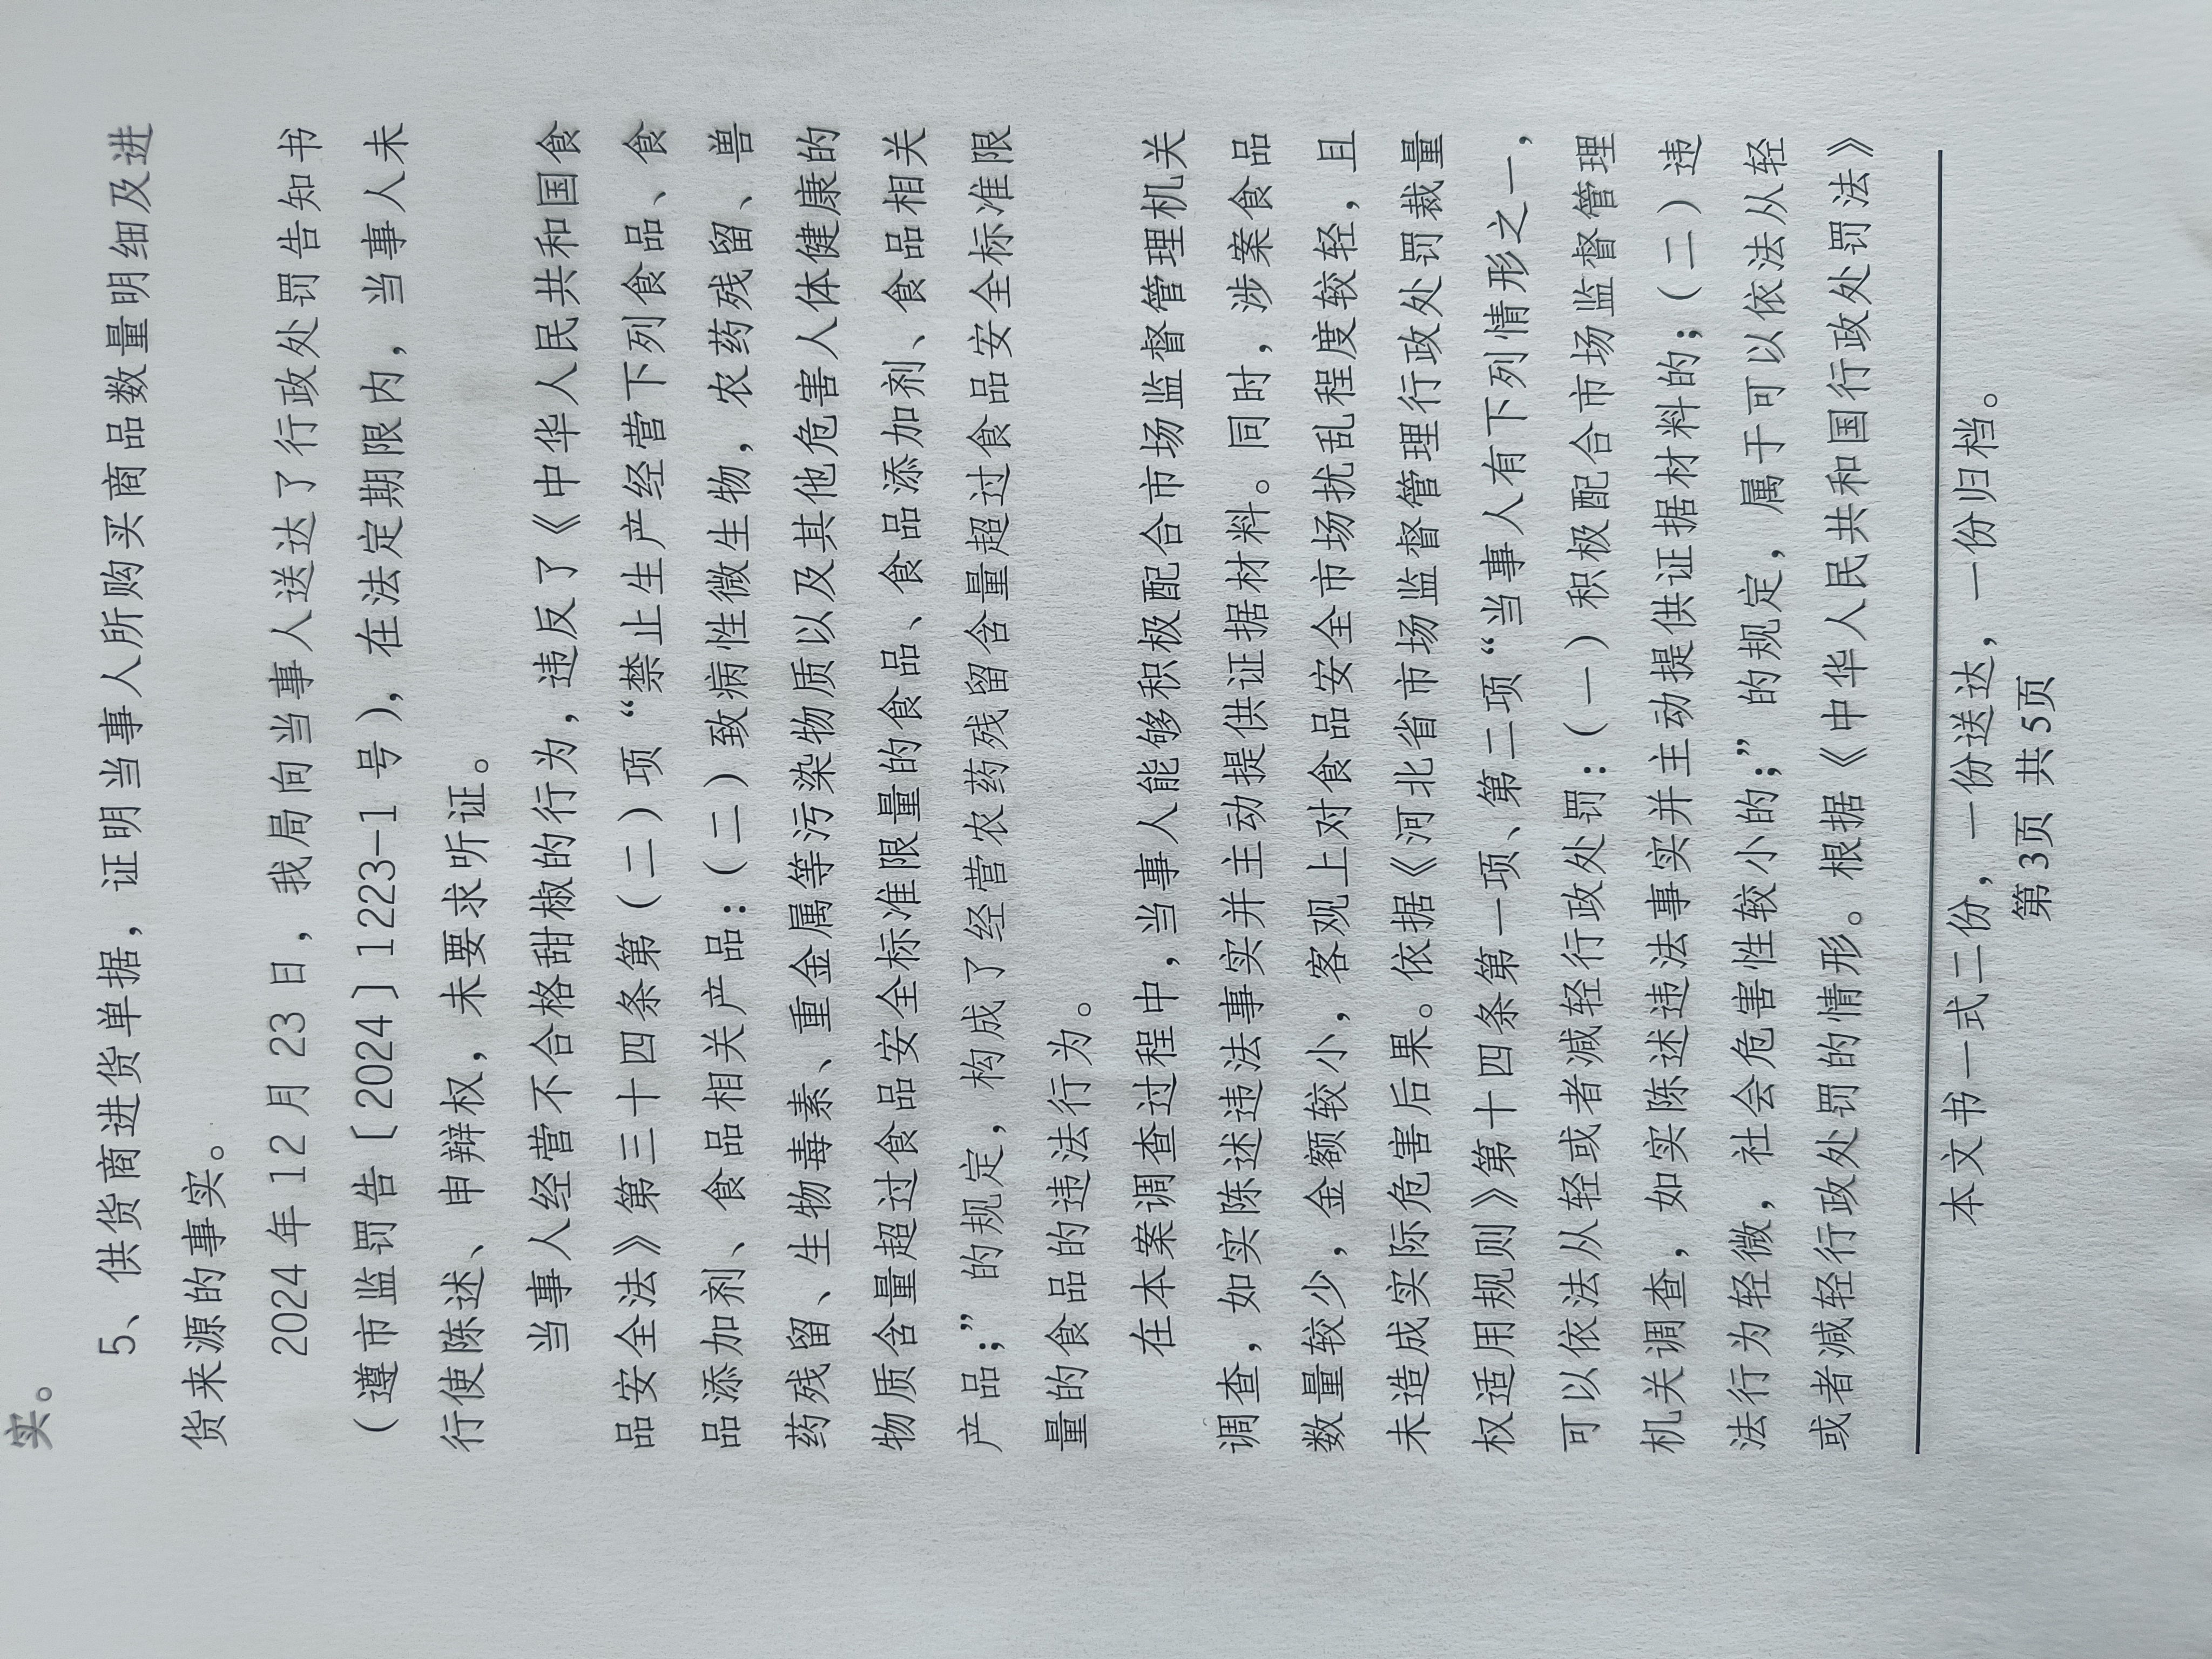 实。
5、供货商进货单据，证明当事人所购买商品数量明细及进
货来源的事实。
2024年12月23日，我局向当事人送达了行政处罚告知书
（遵市监罚告〔2024〕1223-1号），在法定期限内，当事人未
行使陈述、申辩权，未要求听证。
当事人经营不合格甜椒的行为，违反了《中华人民共和国食
品安全法》第三十四条第（二）项“禁止生产经营下列食品、食
品添加剂、食品相关产品：（二）致病性微生物，农药残留、兽
药残留、生物毒素、重金属等污染物质以及其他危害人体健康的
物质含量超过食品安全标准限量的食品、食品添加剂、食品相关
产品；”的规定，构成了经营农药残留含量超过食品安全标准限
量的食品的违法行为。
在本案调查过程中，当事人能够积极配合市场监督管理机关
调查，如实陈述违法事实并主动提供证据材料。同时，涉案食品
数量较少，金额较小，客观上对食品安全市场扰乱程度较轻，且
未造成实际危害后果。依据《河北省市场监督管理行政处罚裁量
权适用规则》第十四条第一项、第二项“当事人有下列情形之一，
可以依法从轻或者减轻行政处罚：（一）积极配合市场监督管理
机关调查，如实陈述违法事实并主动提供证据材料的；（二）违
法行为轻微，社会危害性较小的；”的规定，属于可以依法从轻
或者减轻行政处罚的情形。根据《中华人民共和国行政处罚法》
本文书一式二份，一份送达，一份归档。
第3页 共5页